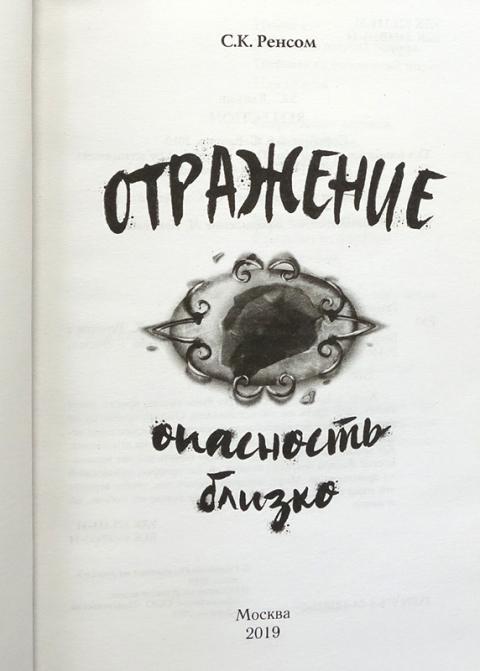 С.К. Ренсом
ОТРАЖЕНИЕ
опасность
близко
Москва
2019